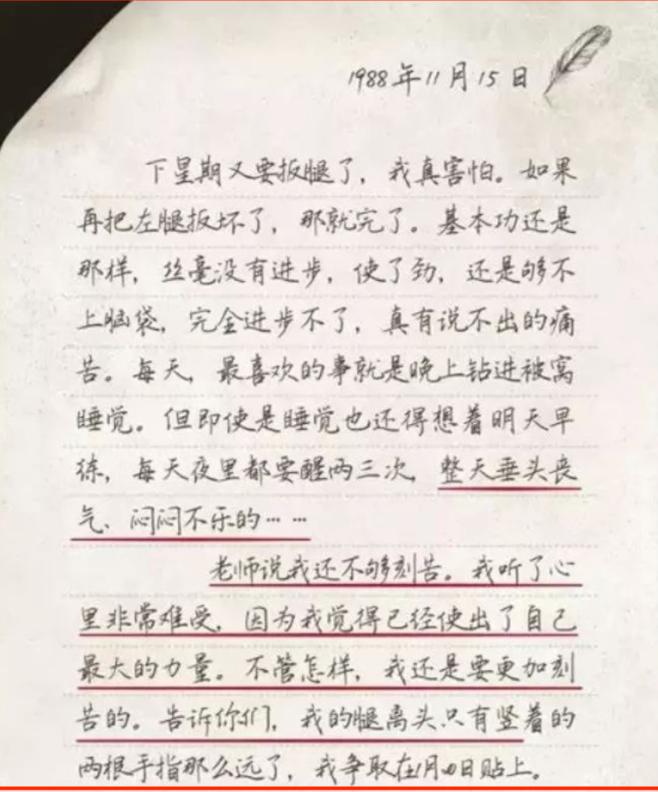 1988年11月15日
下星期又要扳腿了，我真害怕。如果
再把左腿扳坏了，那就完了。基本功还是
那样，丝毫没有进步，使了劲，还是够不
上脑袋，完全进步不了，真有说不出的痛
苦。每天，最喜欢的事就是晚上钻进被窝
睡觉。但即使是睡觉也还得想着明天早
练，每天夜里都要醒两三次，整天垂头丧
气、闷闷不乐的……
老师说我还不够刻苦。我听了心
里非常难受，因为我觉得已经使出了自己
最大的力量。不管怎样，我还是要更加刻
苦的。告诉你们，我的腿离头只有竖着的
两根手指那么远了，我争取在1月日贴上。